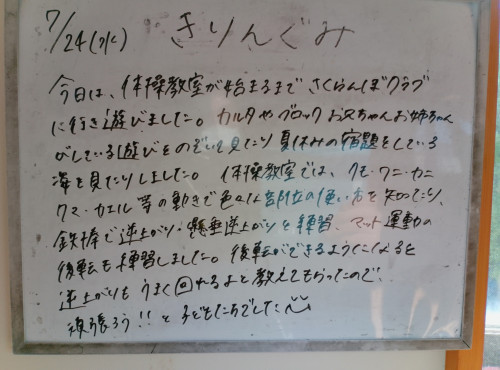 7/24(水) きりんぐみ
今日は、体操教室が始まるまで さくらんぼクラブ
に行き遊びました。カルタや ブロック お兄ちゃん お姉ちゃん
がしている遊びをのぞいて見たり 夏休みの宿題をしている
姿を見たりしました。体操教室では、クモ・ワニ・カニ
クマ・カエル 等の動きで色々な部位の使い方を知ったり、
鉄棒で逆上がり・懸垂逆上がりを練習、マット運動の
後転も練習しました。後転ができるようになると
逆上がりも うまく回れるよと教えてもらったので、
頑張ろう!!と子どもたちでした